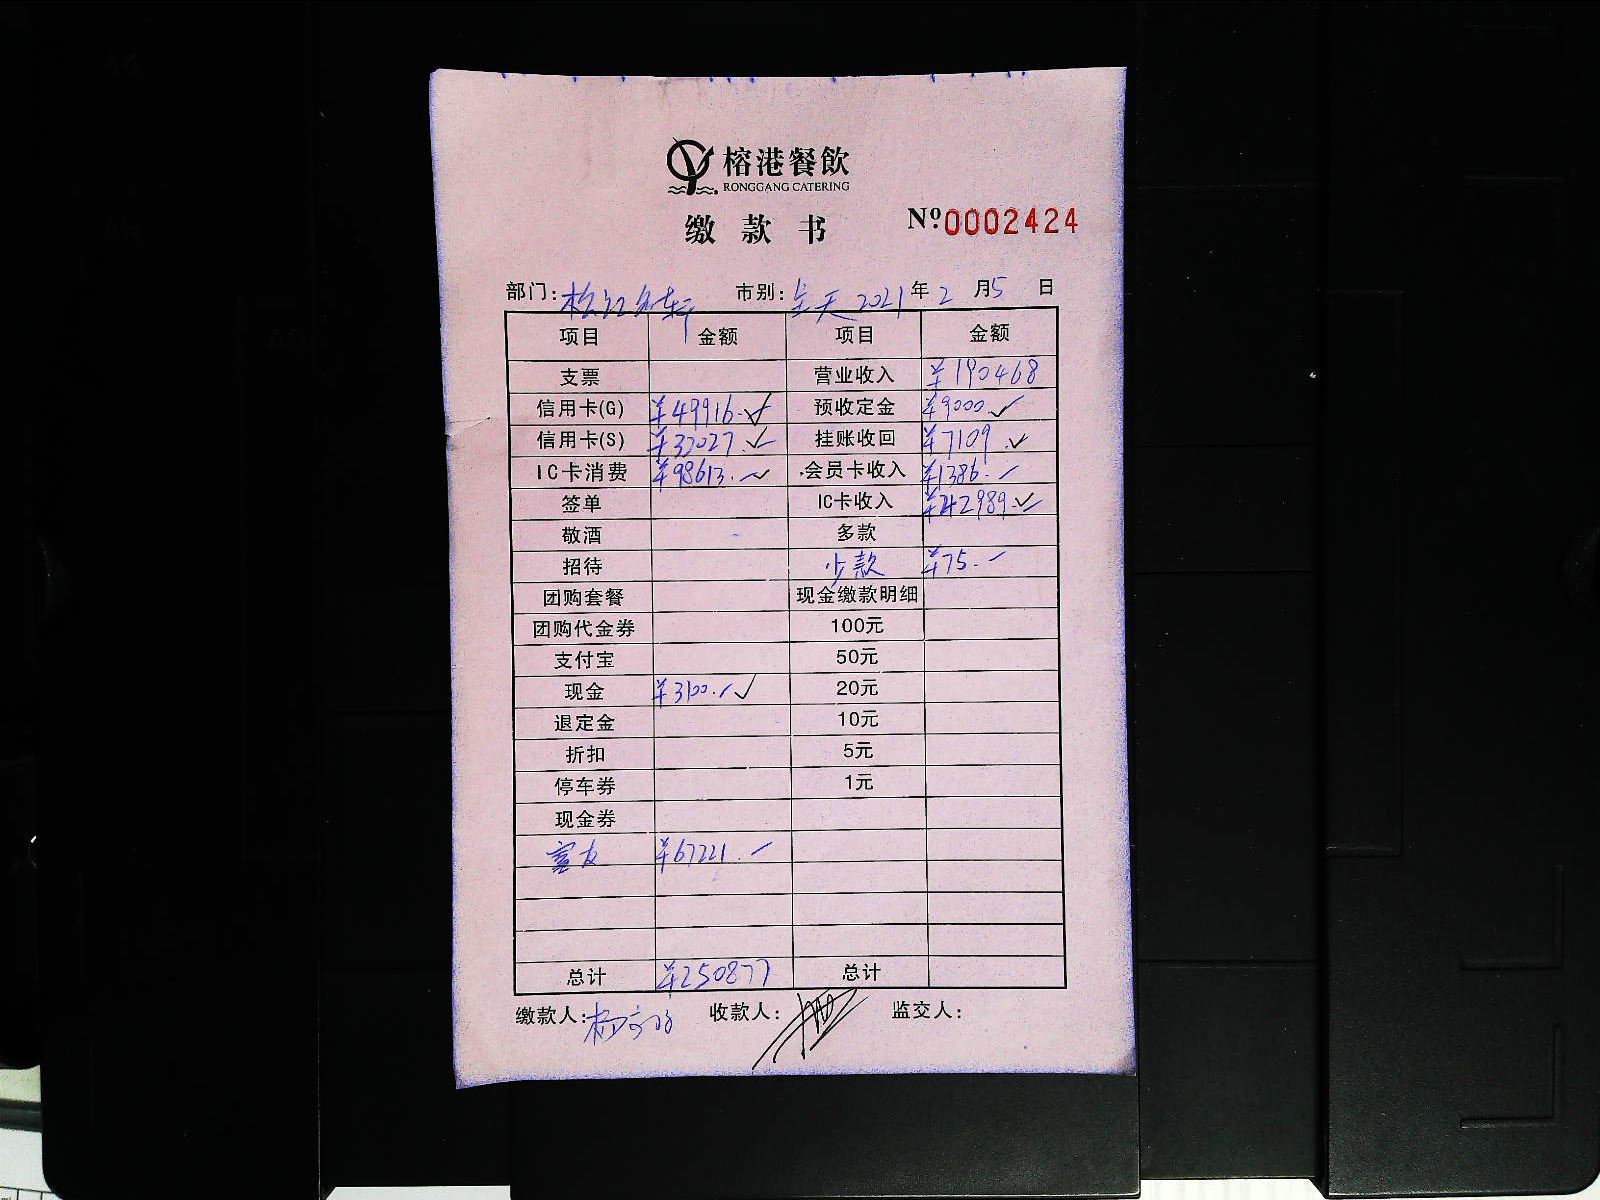 榕港餐飲
RONGGANG CATERING
缴款书
Nº0002424
部门: 松江名轩 市别: 全天 2021年2月5日
项目 金额 项目 金额
支票 营业收入 ¥190468
信用卡(G) ¥49916.- 预收定金 ¥9000
信用卡(S) ¥32027 挂账收回 ¥7109
IC卡消费 ¥98613.- 会员卡收入 ¥1386.-
签单 IC卡收入 ¥42989.-
敬酒 多款
招待 少款 ¥75.-
团购套餐 现金缴款明细
团购代金券 100元
支付宝 50元
现金 ¥3100.- 20元
退定金 10元
折扣 5元
停车券 1元
现金券
富友 ¥67221.-
总计 ¥250877 总计
缴款人: 杨 收款人: 监交人: